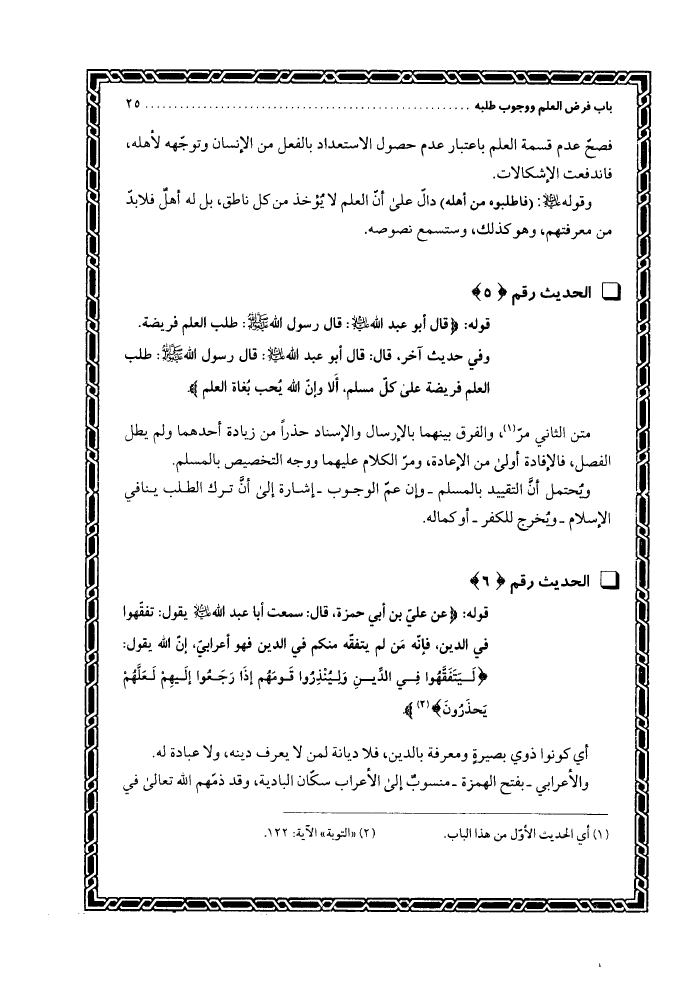 باب فرض العلم ووجوب طلبه ........................................................ ٢٥
فصحّ عدم قسمة العلم باعتبار عدم حصول الاستعداد بالفعل من الإنسان وتوجّهه لأهله،
فاندفعت الإشكالات.
وقوله عليه السلام: (فاطلبوه من أهله) دالّ علىٰ أنّ العلم لا يُؤخذ من كل ناطق، بل له أهلٌ فلابدّ
من معرفتهم، وهو كذلك، وستسمع نصوصه.
❏ الحديث رقم ﴿ ٥ ﴾
قوله: ﴿قال أبو عبد الله عليه السلام: قال رسول الله ﷺ: طلب العلم فريضة.
وفي حديث آخر، قال: قال أبو عبد الله عليه السلام: قال رسول الله ﷺ: طلب
العلم فريضة علىٰ كلّ مسلم، ألا وإنّ الله يُحب بُغاة العلم ﴾.
متن الثاني مرّ(١)، والفرق بينهما بالإرسال والإسناد حذراً من زيادة أحدهما ولم يطل
الفصل، فالإفادة أولىٰ من الإعادة، ومرّ الكلام عليهما ووجه التخصيص بالمسلم.
ويُحتمل أنَّ التقييد بالمسلم ـ وإن عمّ الوجوب ـ إشارة إلىٰ أنَّ ترك الطلب ينافي
الإسلام ـ ويُخرج للكفر ـ أو كماله.
❏ الحديث رقم ﴿ ٦ ﴾
قوله: ﴿عن عليّ بن أبي حمزة، قال: سمعت أبا عبد الله عليه السلام يقول: تفقّهوا
في الدين، فإنّه مَن لم يتفقّه منكم في الدين فهو أعرابيّ، إنّ الله يقول:
﴿لَـيَتَفَقَّهُوا فِـي الدِّيـنِ وَلِـيُنْذِرُوا قَـومَهُم إذَا رَجَـعُوا إلَيـهِمْ لَعَلَّهُمْ
يَحذَرُونَ﴾(٢) ﴾.
أي كونوا ذوي بصيرةٍ ومعرفة بالدين، فلا ديانة لمن لا يعرف دينه، ولا عبادة له.
والأعرابي ـ بفتح الهمزة ـ منسوبٌ إلىٰ الأعراب سكّان البادية، وقد ذمّهم الله تعالىٰ في
(١) أي الحديث الأوّل من هذا الباب. (٢) «التوبة» الآية: ١٢٢.